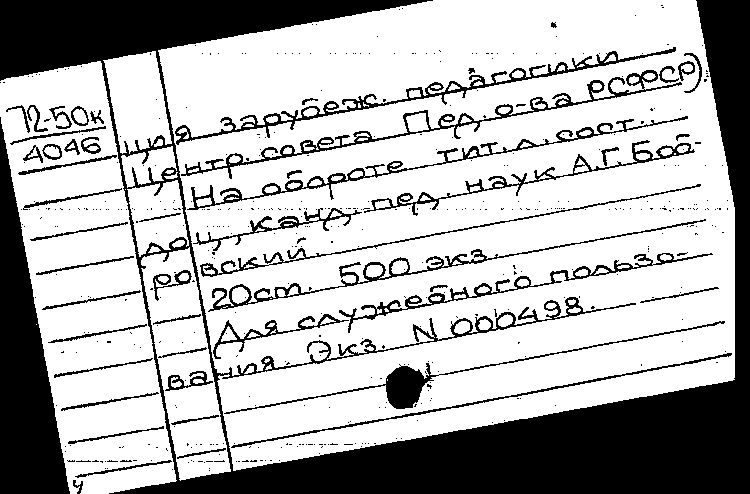 72-50к
4046
ция зарубеж. педагогики
Центр. совета Пед. о-ва РСФСР).
На обороте тит. л. сост.:
доц., канд. пед. наук А.Г. Боб-
ровский.
20ст. 500 экз.
Для служебного пользо-
вания. Экз. N 000498.